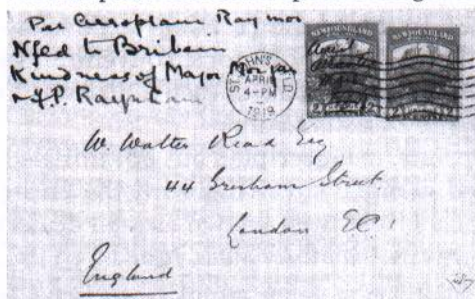 Per Aeroplane Raymor
Nfld to Britain
Kindness of Major Morgan
F.P. Raynham
ST. JOHN'S, NFLD
APR
4-PM
1919
NEWFOUNDLAND
NEWFOUNDLAND
Aerial
Atlantic
W. Walter Read Esq
44 Gresham Street.
London E.C.
England